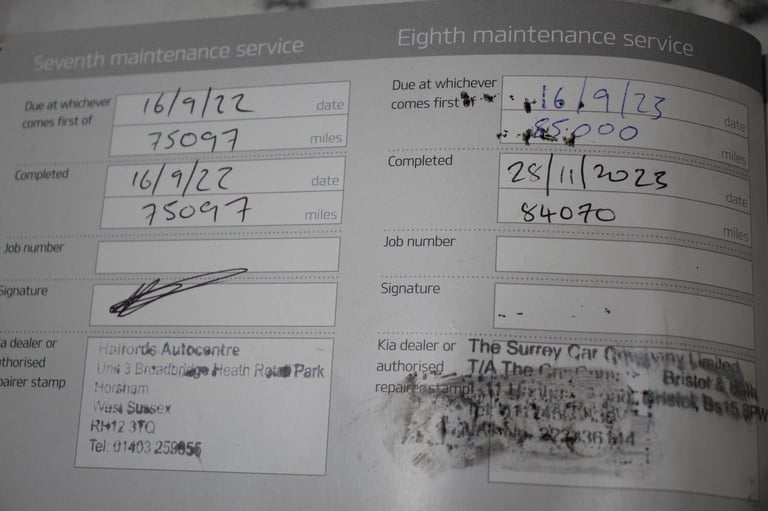 Seventh maintenance service
Due at whichever
comes first of
16/9/22 date
75097 miles
Completed
16/9/22 date
75097 miles
Job number
Signature
a dealer or
thorised
pairer stamp
Halfords Autocentre
Unit 3 Broadbridge Heath Retail Park
Horsham
West Sussex
RH12 3TQ
Tel: 01403 259855
Eighth maintenance service
Due at whichever
comes first of
16/9/23 date
85000 miles
Completed
28/11/2023 date
84070 miles
Job number
Signature
Kia dealer or
authorised
repairer stamp
The Surrey Car Company Limited
T/A The
Bristol &
Bristol, Bs15